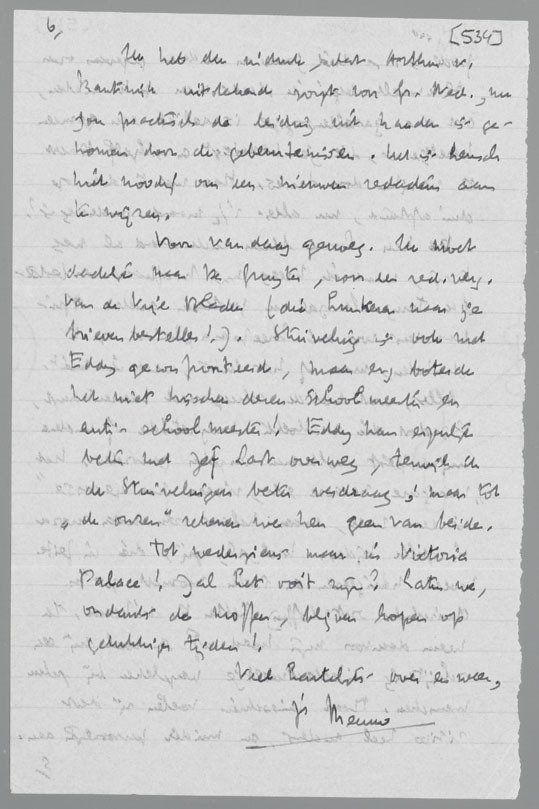 6,
[534]
Ik heb den indruk, dat
uitstekend zorgt voor Gr. Ned., nu
Jan practisch de leiding uit handen is ge-
nomen door de gebeurtenissen. het is heusch
niet noodig om een nieuwen redacteur aan
te wijzen.
Voor vandaag genoeg. Ik moet
dadelijk naar de, voor een red. verg.
van de Vrije Bladen (die naar je
brieven bestellen!). Stuiveling is ook met
Eddy geconfronteerd, maar er boterde
het niet tusschen dezen schoolmeester en
anti-schoolmeester! Eddy kan eigenlijk
beter met Jef Last overweg terwijl ik
de Stuivelingen beter verdraag; maar tot
„de onzen" rekenen we hen geen van beide.
Tot wederziens maar in Victoria
Palace! Zal het ooit zijn? Laten we,
ondanks de Moffen, blijven hopen op
gelukkiger tijden!
Veel hartelijks over en weer,
je Menno